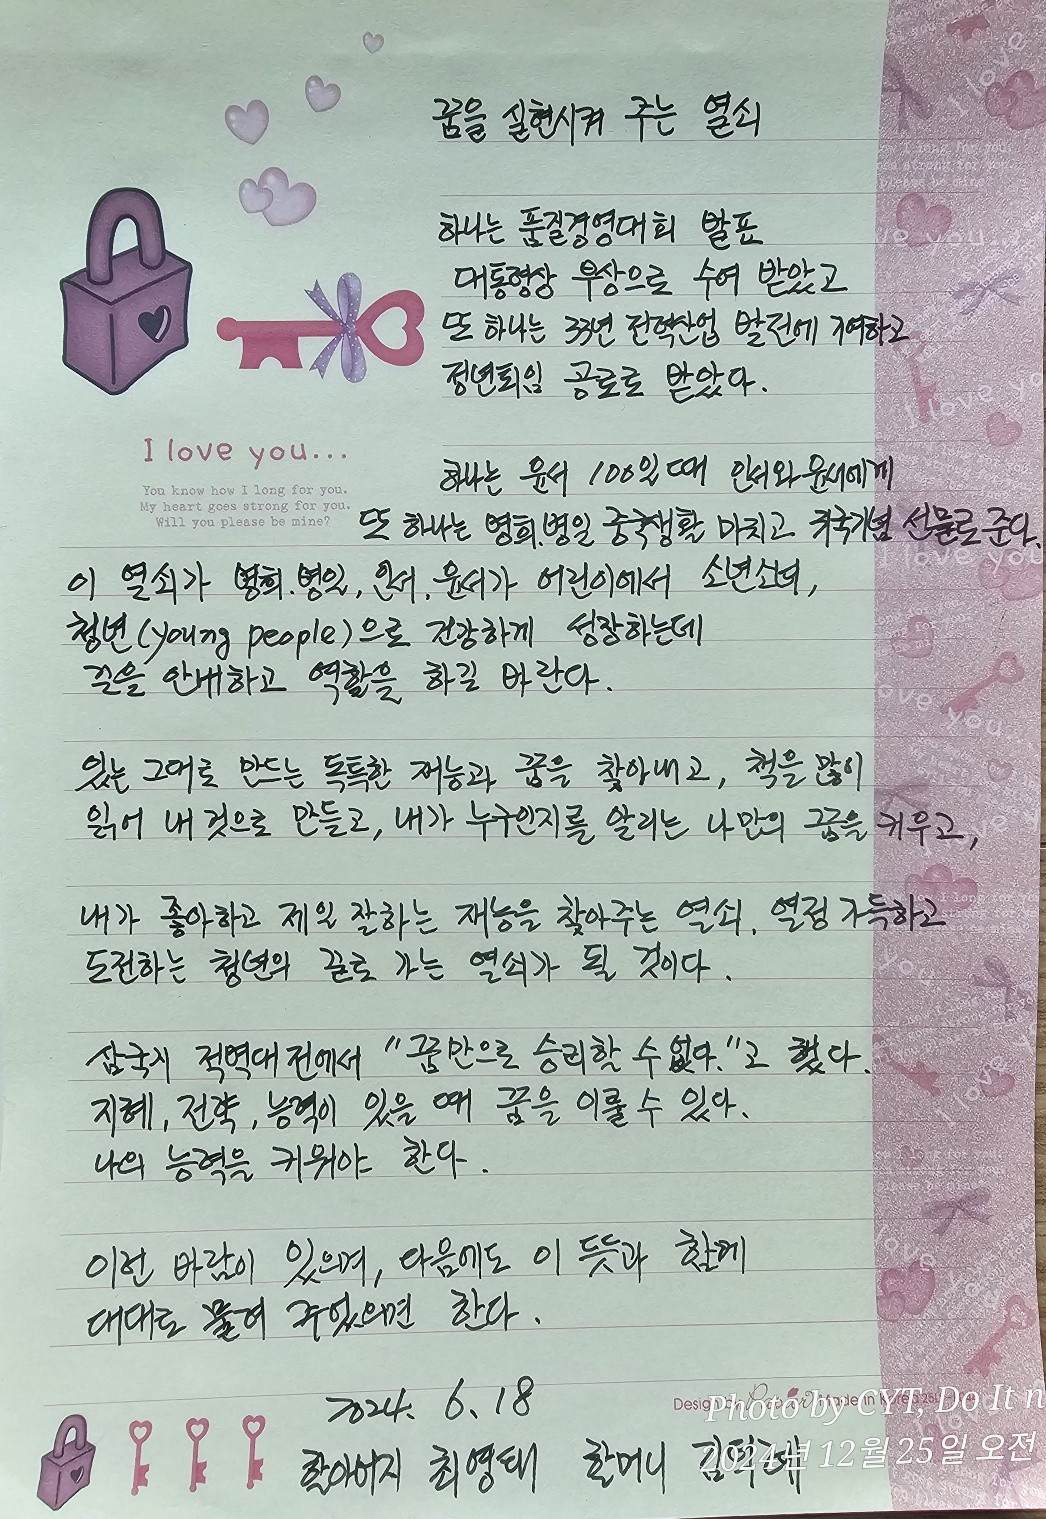 꿈을 실현시켜 주는 열쇠
하나는 품질경영대회 발표
대통령상 부상으로 수여 받았고
또 하나는 33년 전력산업 발전에 기여하고
정년퇴임 공로로 받았다.
I love you...
You know how I long for you.
My heart goes strong for you.
Will you please be mine?
하나는 윤서 100일 때 인서와 윤서에게
또 하나는 병희.병일 중국생활 마치고 귀국기념 선물로 준다.
이 열쇠가 병희.병일, 인서, 윤서가 어린이에서 소년소녀,
청년(young people)으로 건강하게 성장하는데
길을 안내하고 역할을 하길 바란다.
있는 그대로 만드는 독특한 재능과 꿈을 찾아내고, 책을 많이
읽어 내 것으로 만들고, 내가 누구인지를 알리는 나만의 꿈을 키우고,
내가 좋아하고 제일 잘하는 재능을 찾아주는 열쇠, 열정 가득하고
도전하는 청년의 길로 가는 열쇠가 될 것이다.
삼국지 적벽대전에서 "꿈만으로 승리할 수 없다."고 했다.
지혜, 전략, 능력이 있을 때 꿈을 이룰 수 있다.
나의 능력을 키워야 한다.
이런 바람이 있으며, 다음에도 이 뜻과 함께
대대로 물려 주었으면 한다.
2024. 6. 18
Design by Made in Korea
Photo by CYT, Do It n
할아버지 최영태 할머니
2024년 12월 25일 오전